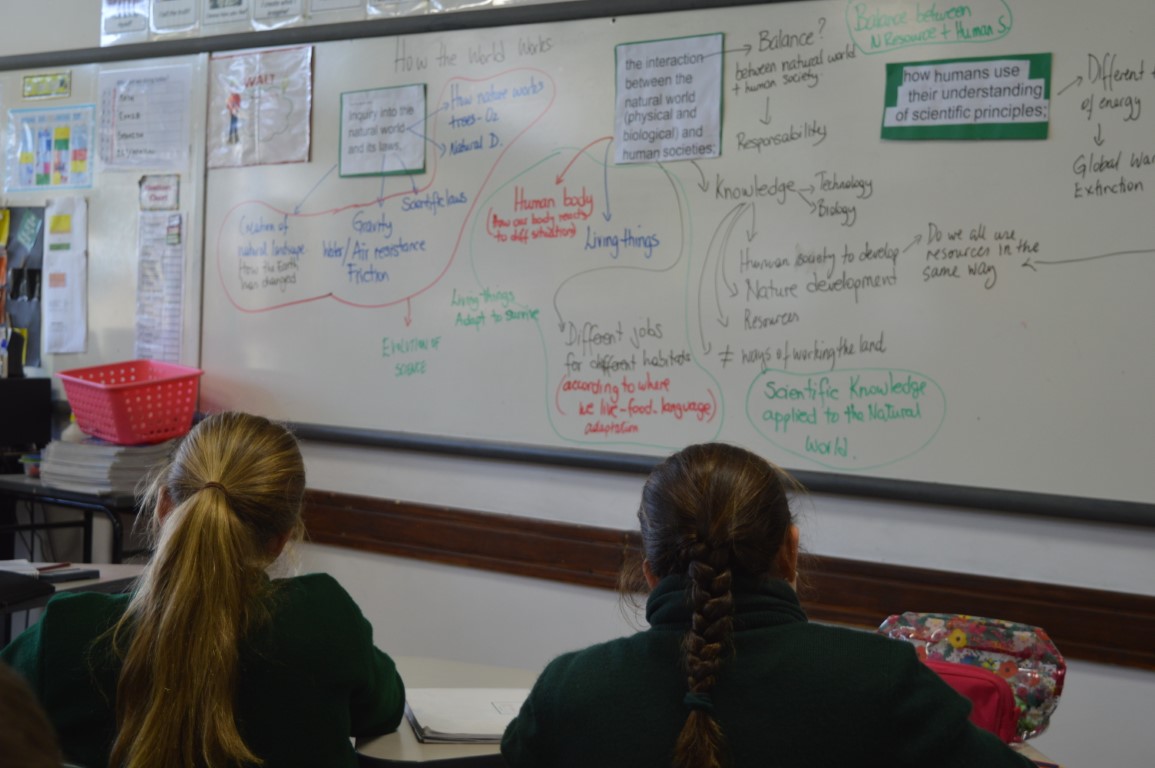 How the World Works
WAIT
inquiry into the
natural world
and its laws,
How nature works
trees - O2
Natural D.
Scientific laws
Creation of
natural landscape
How the Earth
has changed
Gravity
Water/Air resistance
Friction
EVOLUTION OF
SCIENCE
the interaction
between the
natural world
(physical and
biological) and
human societies;
Balance?
between natural world
+ human society
Responsability
Human body
(how our body reacts
to diff situations)
Living things
Living things
Adapt to survive
Different jobs
for different habitats
(according to where
we live - food - language)
adaptation
Knowledge
Technology
Biology
Human society to develop
Nature development
Resources
≠ ways of working the land
Do we all use
resources in the
same way
Scientific Knowledge
applied to the Natural
World.
Balance between
N Resource + Human S.
how humans use
their understanding
of scientific principles;
Different
of energy
Global War
Extinction